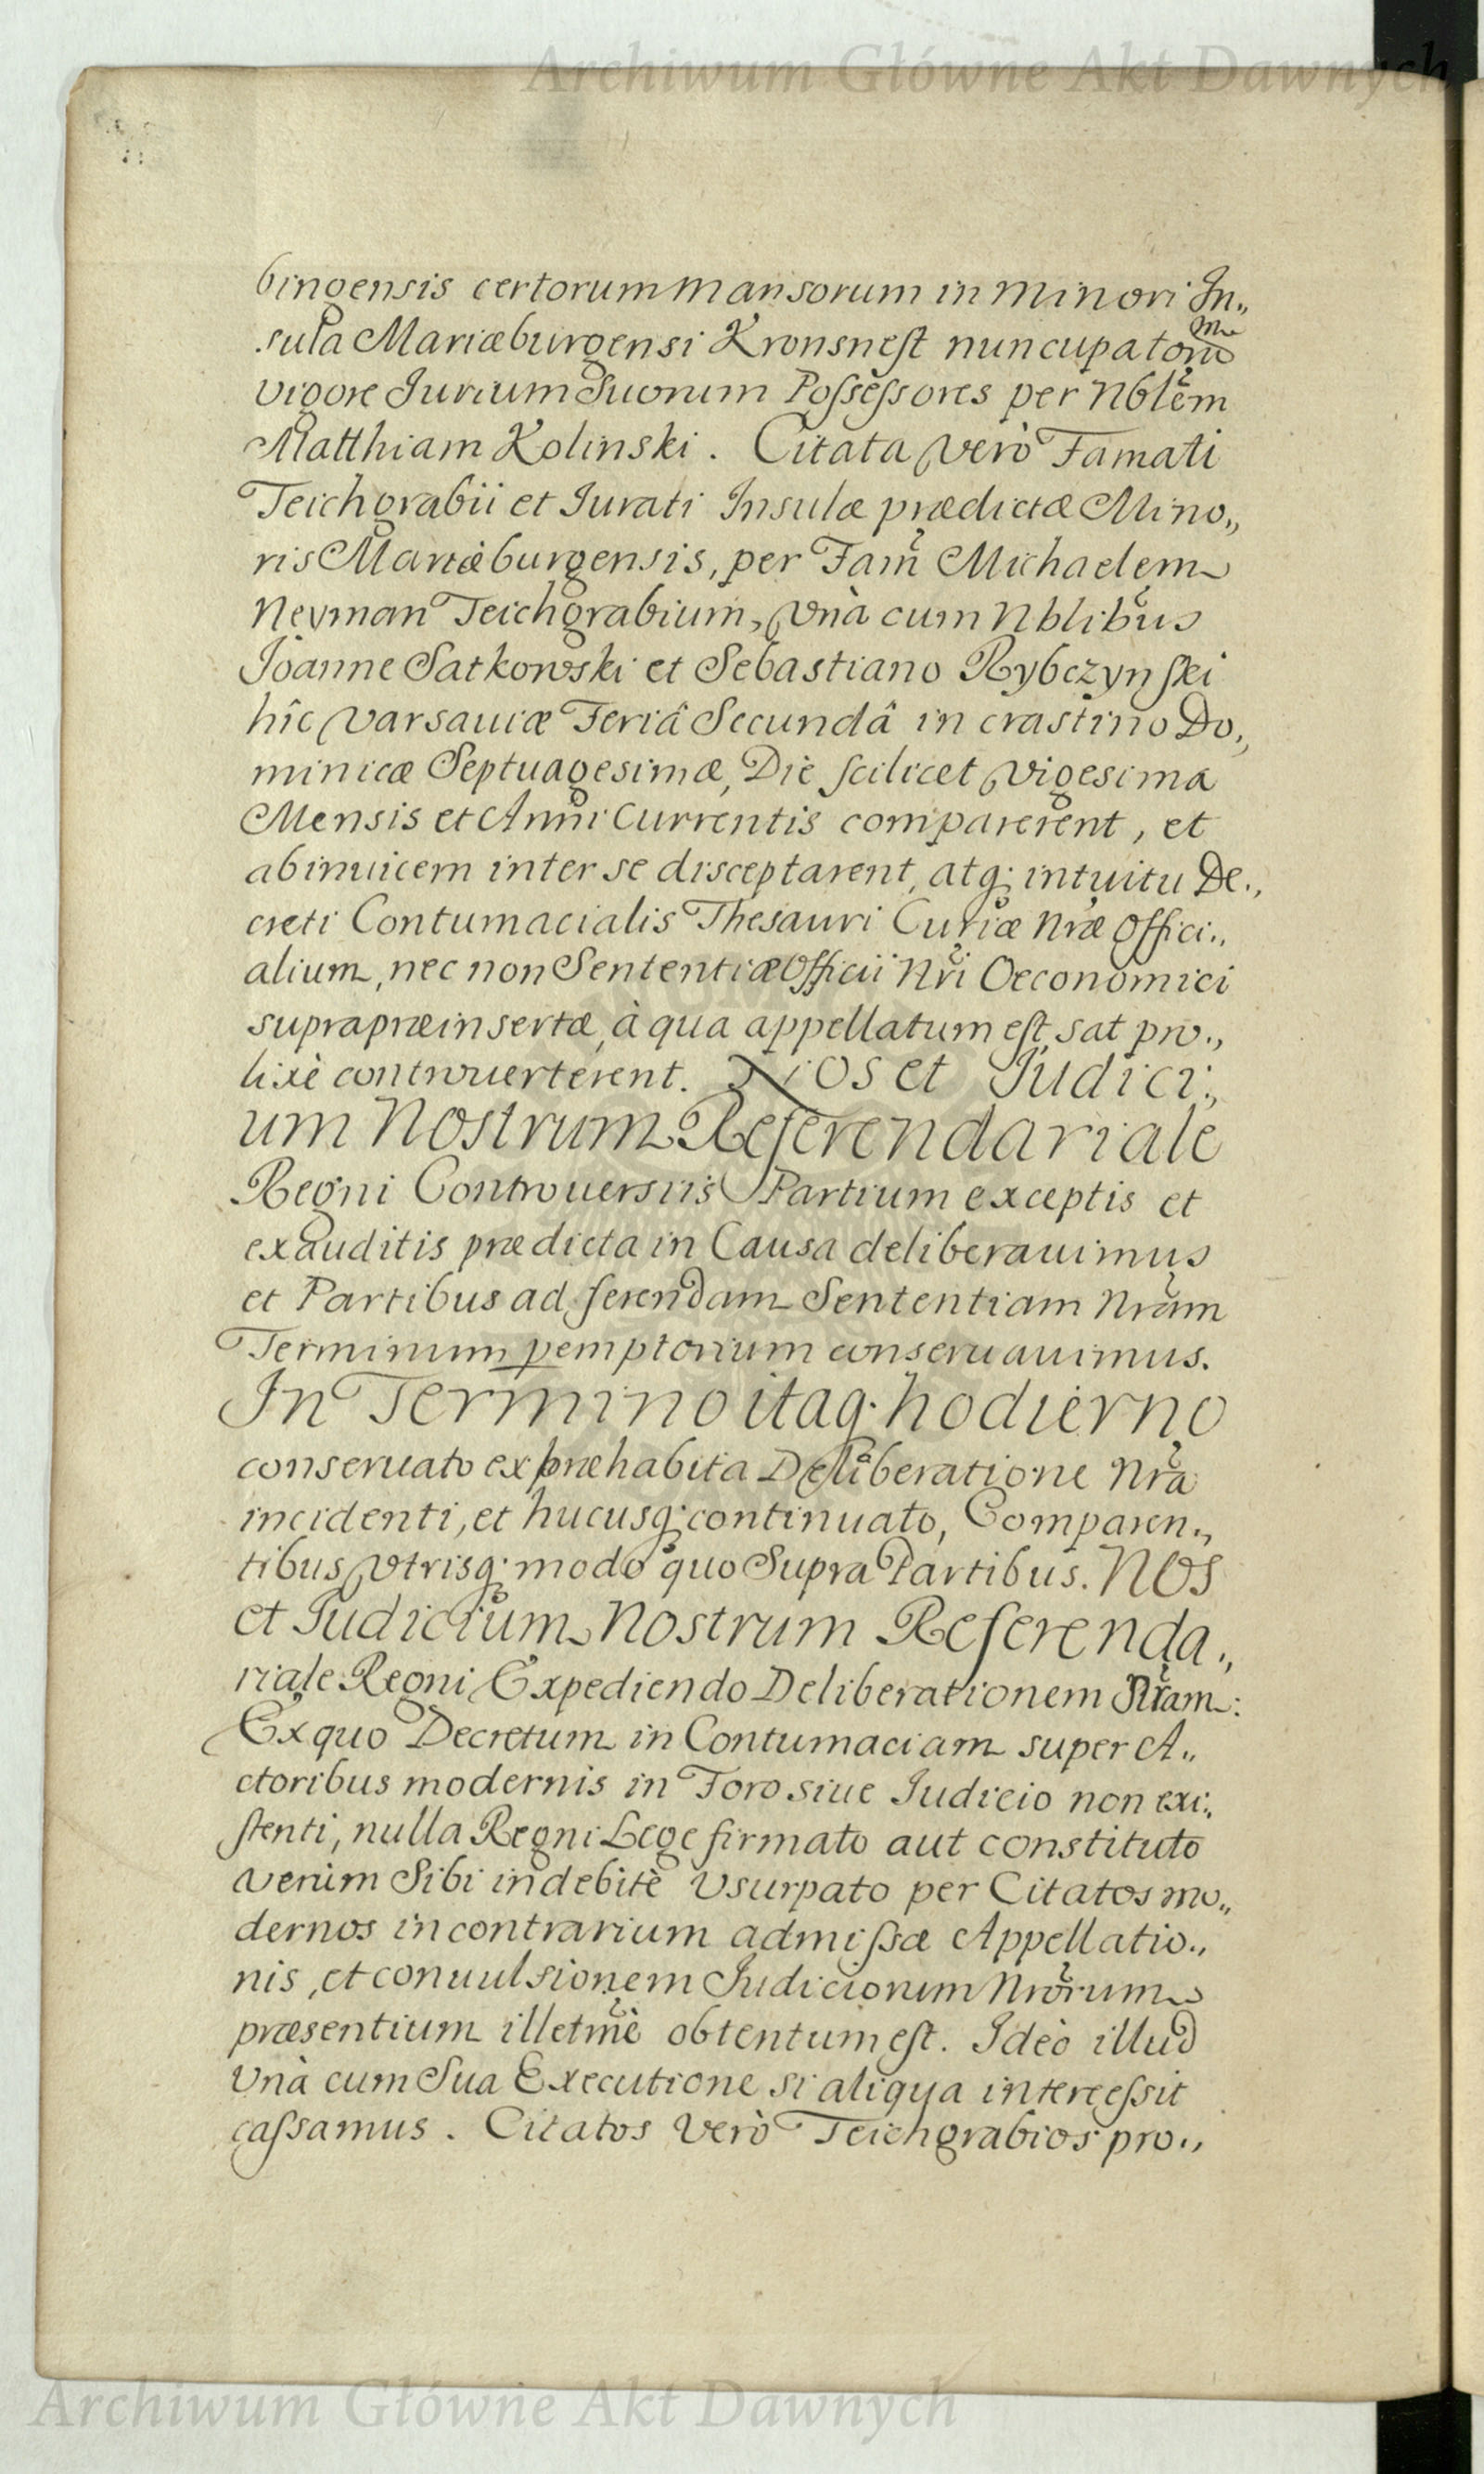 Archiwum Główne Akt Dawnych
bingensis certorum Mansorum in Minori In„
sula Mariæburgensi Kronsnest nuncupatorũ
vigore Iurium Suorum Possessores per Nblem
Matthiam Kolinski. Citata verò Famati
Teichgrabii et Iurati Insulæ prædictæ Mino„
ris Mariæburgensis, per Fam̃ Michaelem
Neyman Teichgrabium, Vnà cum Nblibus
Joanne Satkowski et Sebastiano Rybczynski
hîc Varsauiæ Feriâ Secundâ in crastino Do„
minicæ Septuagesimæ, Die scilicet Vigesima
Mensis et Anni Currentis comparerent, et
abinuicem inter se disceptarent, atq; intuitu De„
creti Contumacialis Thesauri Curiæ Nræ Offici„
alium, nec non Sententiæ Officii Nri Oeconomici
suprapræinsertæ, à qua appellatum est, sat pro„
lixè controuerterent. Nos et Judici„
um Nostrum Referendariale
Regni Controuersiis Partium exceptis et
exauditis prædicta in Causa deliberauimus
et Partibus ad ferendam Sententiam Nram
Terminum pemptorium conseruauimus.
In Termino itaq; hodierno
conseruato ex præhabita Deliberatione Nra
incidenti, et hucusq; continuato, Comparen„
tibus Vtrisq; modo quo Supra Partibus. Nos
et Judicium Nostrum Referenda„
riale Regni Expediendo Deliberationem Nram:
Ex quo Decretum in Contumaciam super A„
ctoribus modernis in Foro siue Judicio non exi„
stenti, nulla Regni Lege firmato aut constituto
verùm Sibi indebitè Vsurpato per Citatos mo„
dernos in contrarium admissæ Appellatio„
nis, et conuulsionem Judiciorum Nrorum
præsentium illetmè obtentum est. Ideò illud
Vnà cum Sua Executione si aliqua intercessit
cassamus. Citatos verò Teichgrabios pro„
Archiwum Główne Akt Dawnych